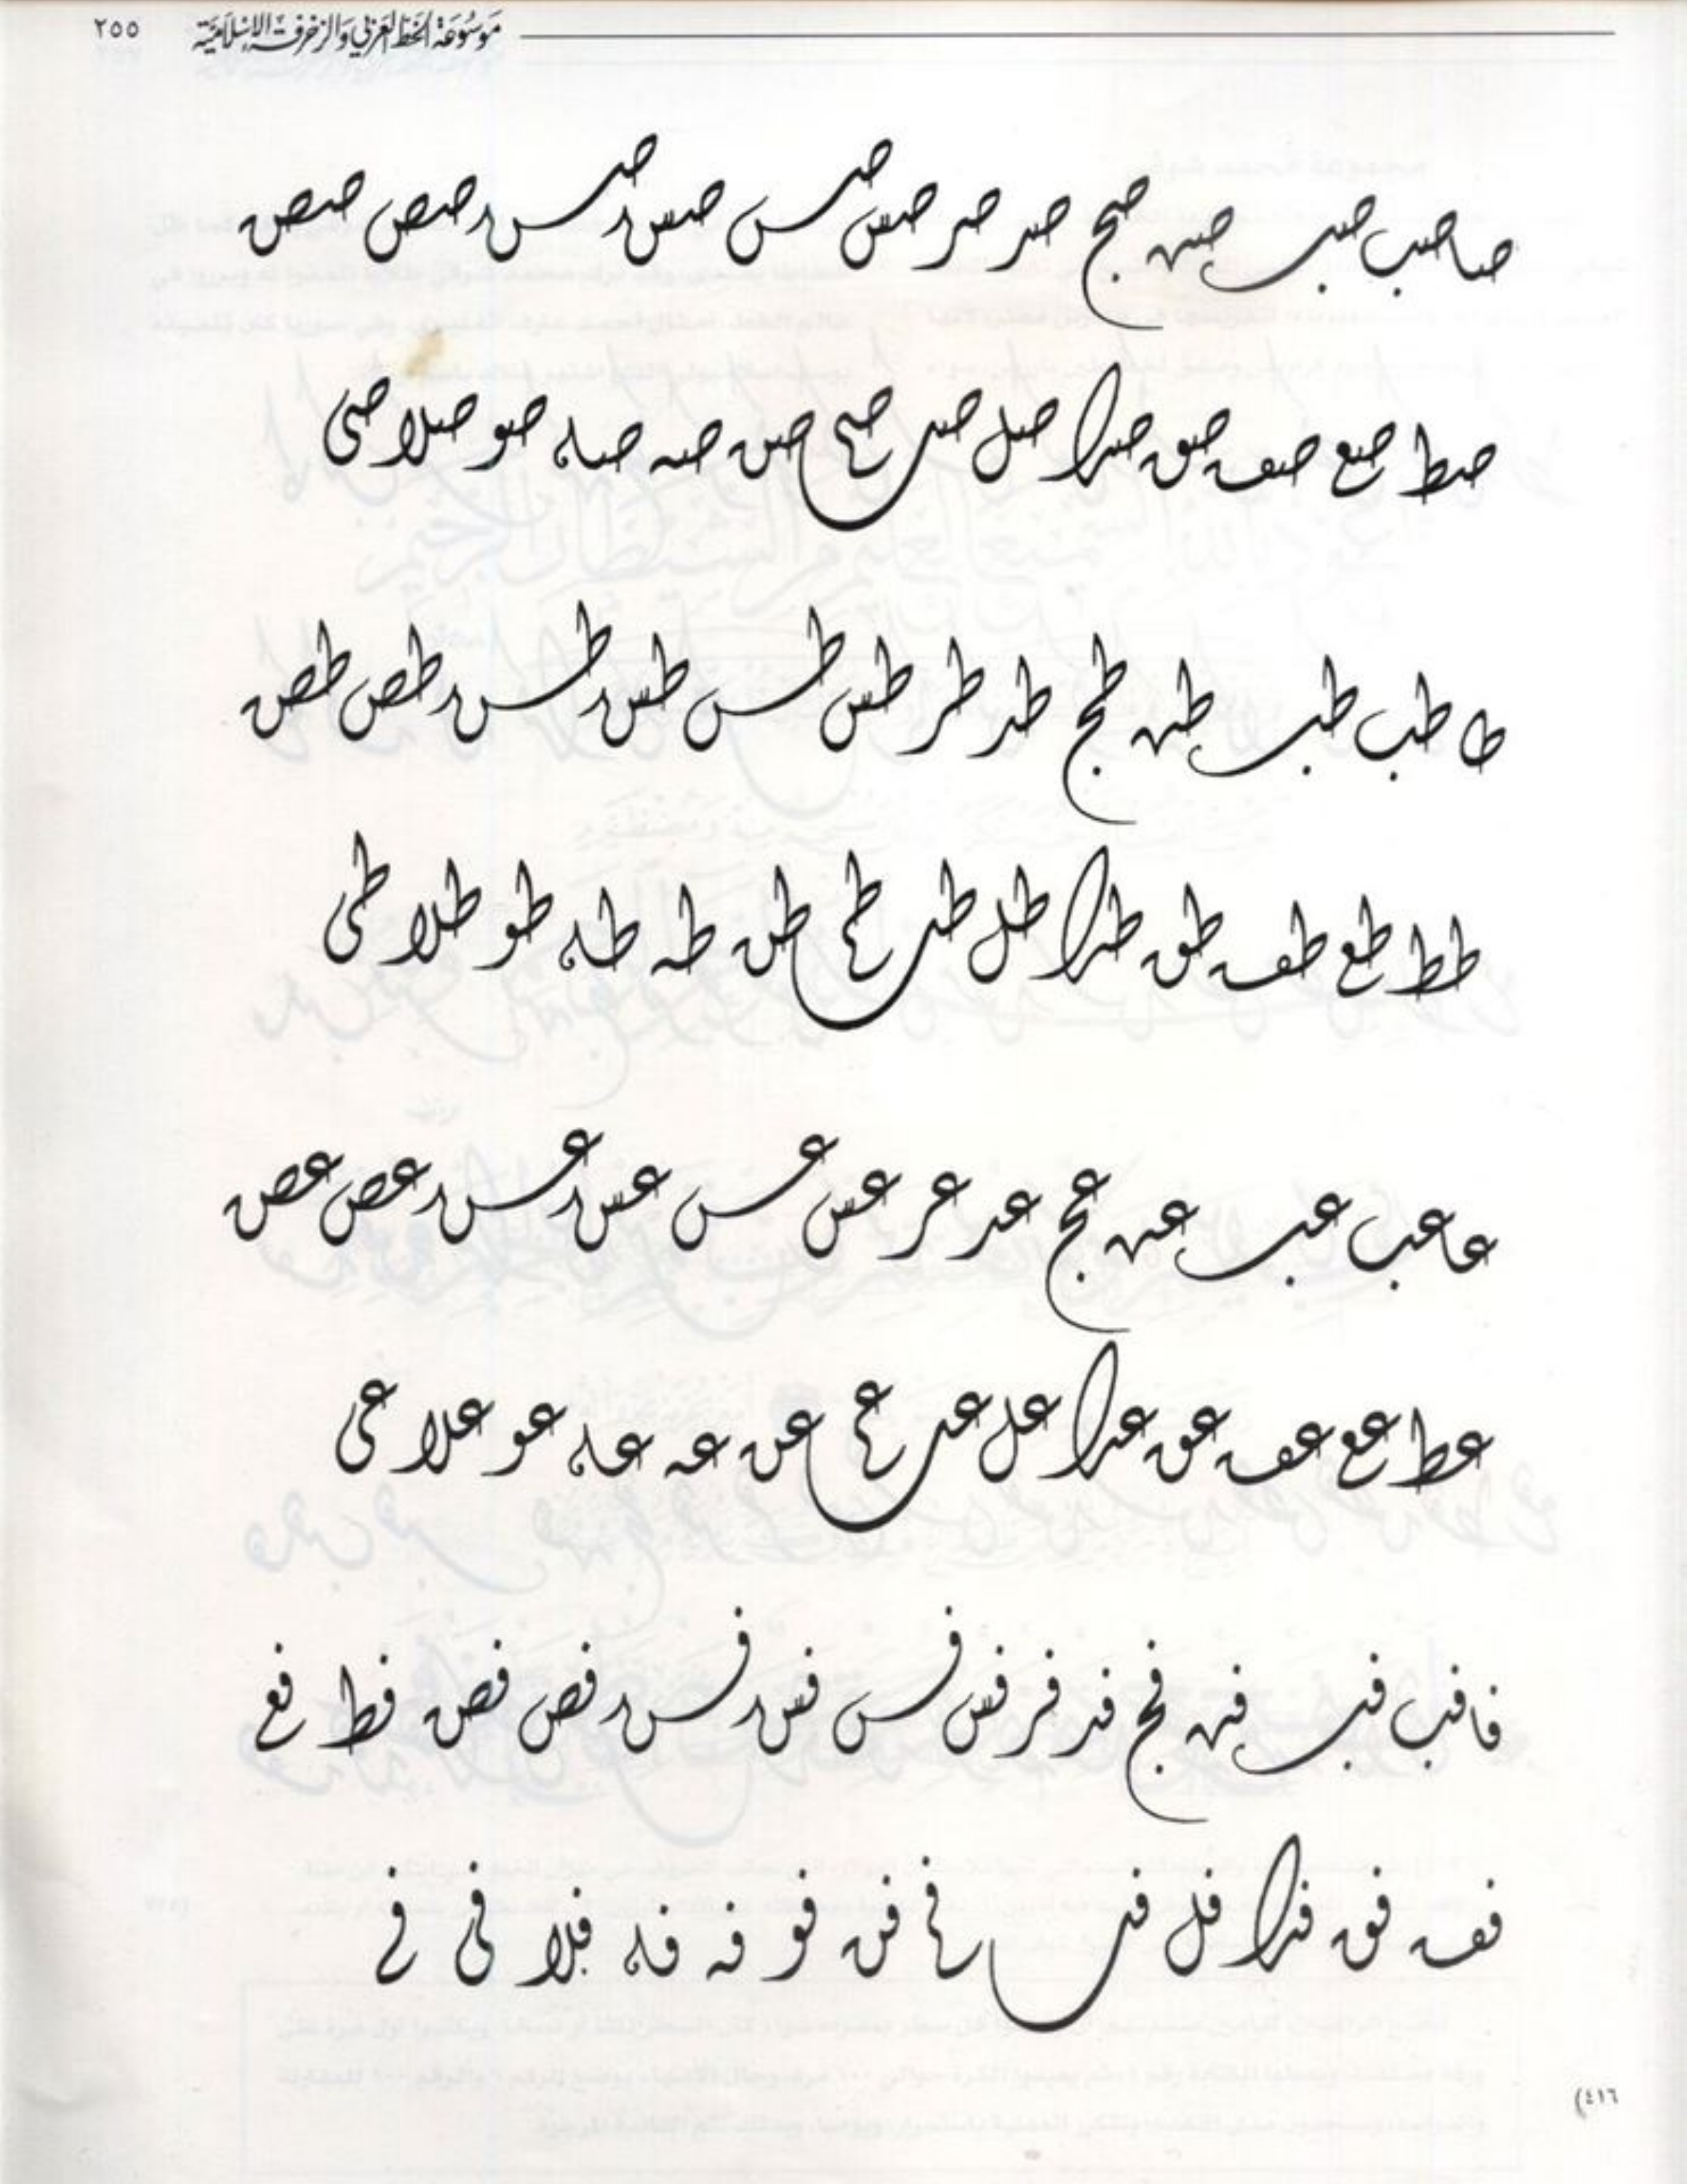 موسوعة الخط العربي والزخرفة الإسلامية ٢٥٥
صا صب صب صبه صج صد صر صر صس صس صس صس صص صص
صط صع صف صق صدا صل صں صم صن صه صه صو صلا صى
طا طب طب طبه طج طد طر طس طس طس طس طص طص
طط طع طف طق طدا طل طں طم طن طه طه طو طلا طى
عا عب عب عبه عج عد عر عس عس عس عس عص عص
عط عع عف عق عدا عل عں عم عن عه عه عو علا عى
فا فب فب فبه فج فد فر فس فس فس فس فص فص فط فع
فف فق فدا فل فں فم فن فو فه فه فلا فى فے
(٤١٦